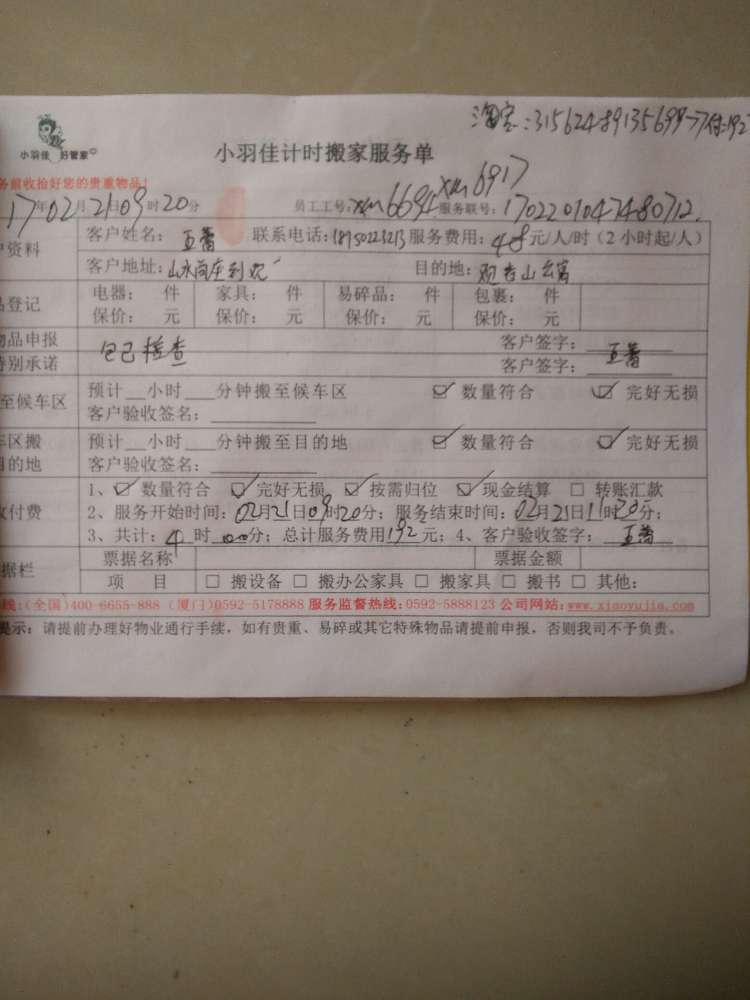 淘宝:3156248913569977付:192
小羽佳 好管家
小羽佳计时搬家服务单
务前收拾好您的贵重物品!
17年02月21日09时20分 员工工号:xm6694 xm6917 服务联号:1702201047480712
户资料 客户姓名: 联系电话:18750223213 服务费用:48元/人/时(2小时起/人)
客户地址: 目的地:观音山
品登记 电器: 件 家具: 件 易碎品: 件 包裹: 件
保价: 元 保价: 元 保价: 元 保价: 元
物品申报 客户签字:
特别承诺 包已检查 客户签字:
至候车区 预计__小时___分钟搬至候车区 ☑ 数量符合 ☑ 完好无损
客户验收签名:
车区搬 预计__小时___分钟搬至目的地 ☑ 数量符合 ☑ 完好无损
目的地 客户验收签名:
1、☑ 数量符合 ☑ 完好无损 ☑ 按需归位 ☑ 现金结算 □ 转账汇款
收付费 2、服务开始时间:02月21日09时20分;服务结束时间:02月21日11时20分;
3、共计:4时00分;总计服务费用192元;4、客户验收签字:
据栏 票据名称 票据金额
项 目 □ 搬设备 □ 搬办公家具 □ 搬家具 □ 搬书 □ 其他:
线:(全国)400-6655-888 (厦门)0592-5178888 服务监督热线:0592-5888123 公司网站:www.xiaoyujia.com
提示:请提前办理好物业通行手续,如有贵重、易碎或其它特殊物品请提前申报,否则我司不予负责。